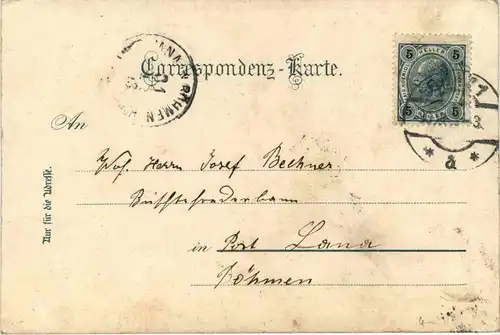 Correspondenz-Karte.
5 HELLER 5
5 5
LANA BÖHMEN
1
3
* a *
An
Herrn Josef Bechner
in Post Lana
Böhmen
Nur für die Adresse.